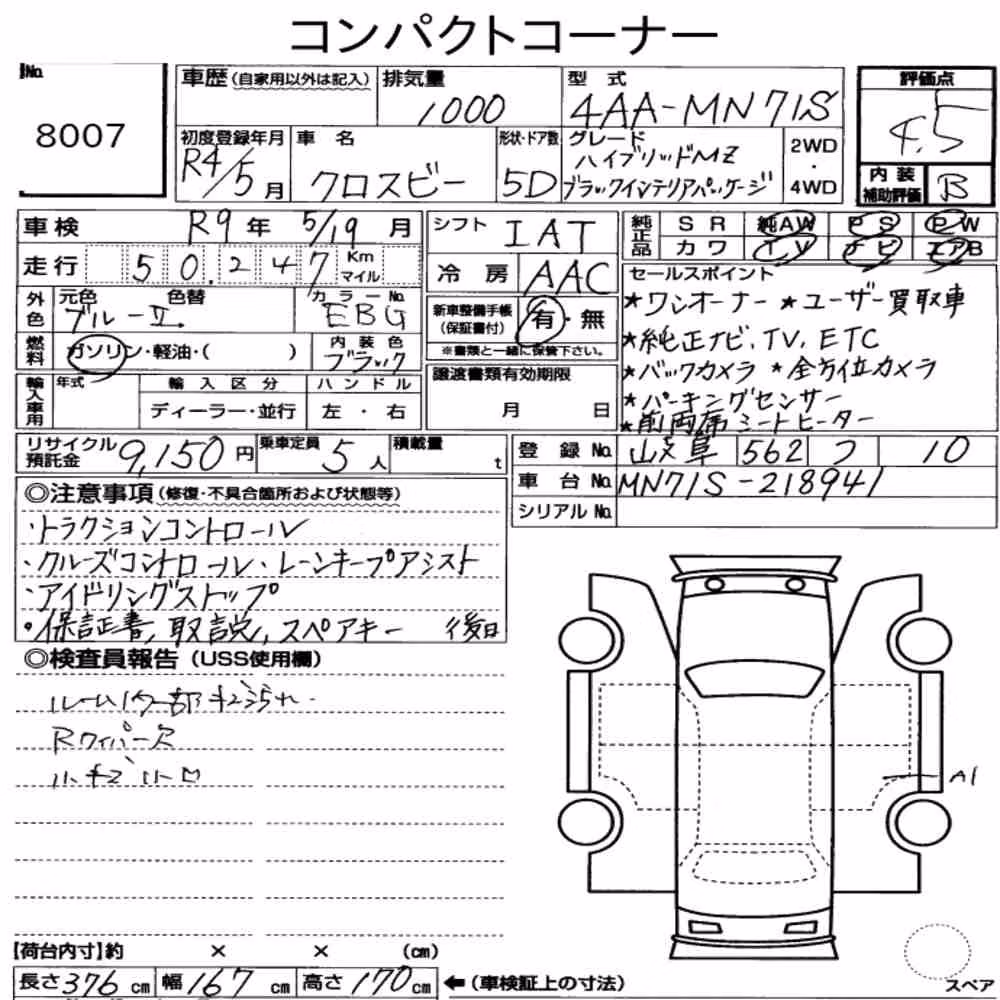 コンパクトコーナー
No.
8007
車歴(自家用以外は記入)
排気量
1000
型式
4AA-MN71S
評価点
4.5
内装補助評価 B
初度登録年月
R4/5月
車名
クロスビー
形状・ドア数
5D
グレード
ハイブリッドMZ
ブラックインテリアパッケージ
2WD・4WD
車検 R9年 5/19月
走行 50,247 Km マイル
外色
元色 色替
ブルーII.
カラーNo.
EBG
燃料
ガソリン・軽油・( )
内装色
ブラック
輸入車用
年式
輸入区分
ディーラー・並行
ハンドル
左・右
シフト IAT
冷房 AAC
新車整備手帳(保証書付)
有・無
※書類と一緒に保管下さい。
譲渡書類有効期限
月 日
純正品
SR 純AW PS PW
カワ TV ナビ エアB
セールスポイント
★ワンオーナー ★ユーザー買取車
★純正ナビ、TV、ETC
★バックカメラ ★全方位カメラ
★パーキングセンサー
★前両席シートヒーター
リサイクル預託金 9,150円
乗車定員 5人
積載量 t
登録No. 岐阜 562 フ 10
車台No. MN71S-218941
シリアルNo.
◎注意事項(修復・不具合箇所および状態等)
・トラクションコントロール
・クルーズコントロール・レーンキープアシスト
・アイドリングストップ
・保証書、取説、スペアキー 後日
◎検査員報告(USS使用欄)
ルーム内部キズ汚れ
Rワイパー欠
小キズ小凹
A1
【荷台内寸】約 × × (cm)
長さ376cm 幅167cm 高さ170cm ←(車検証上の寸法)
スペア